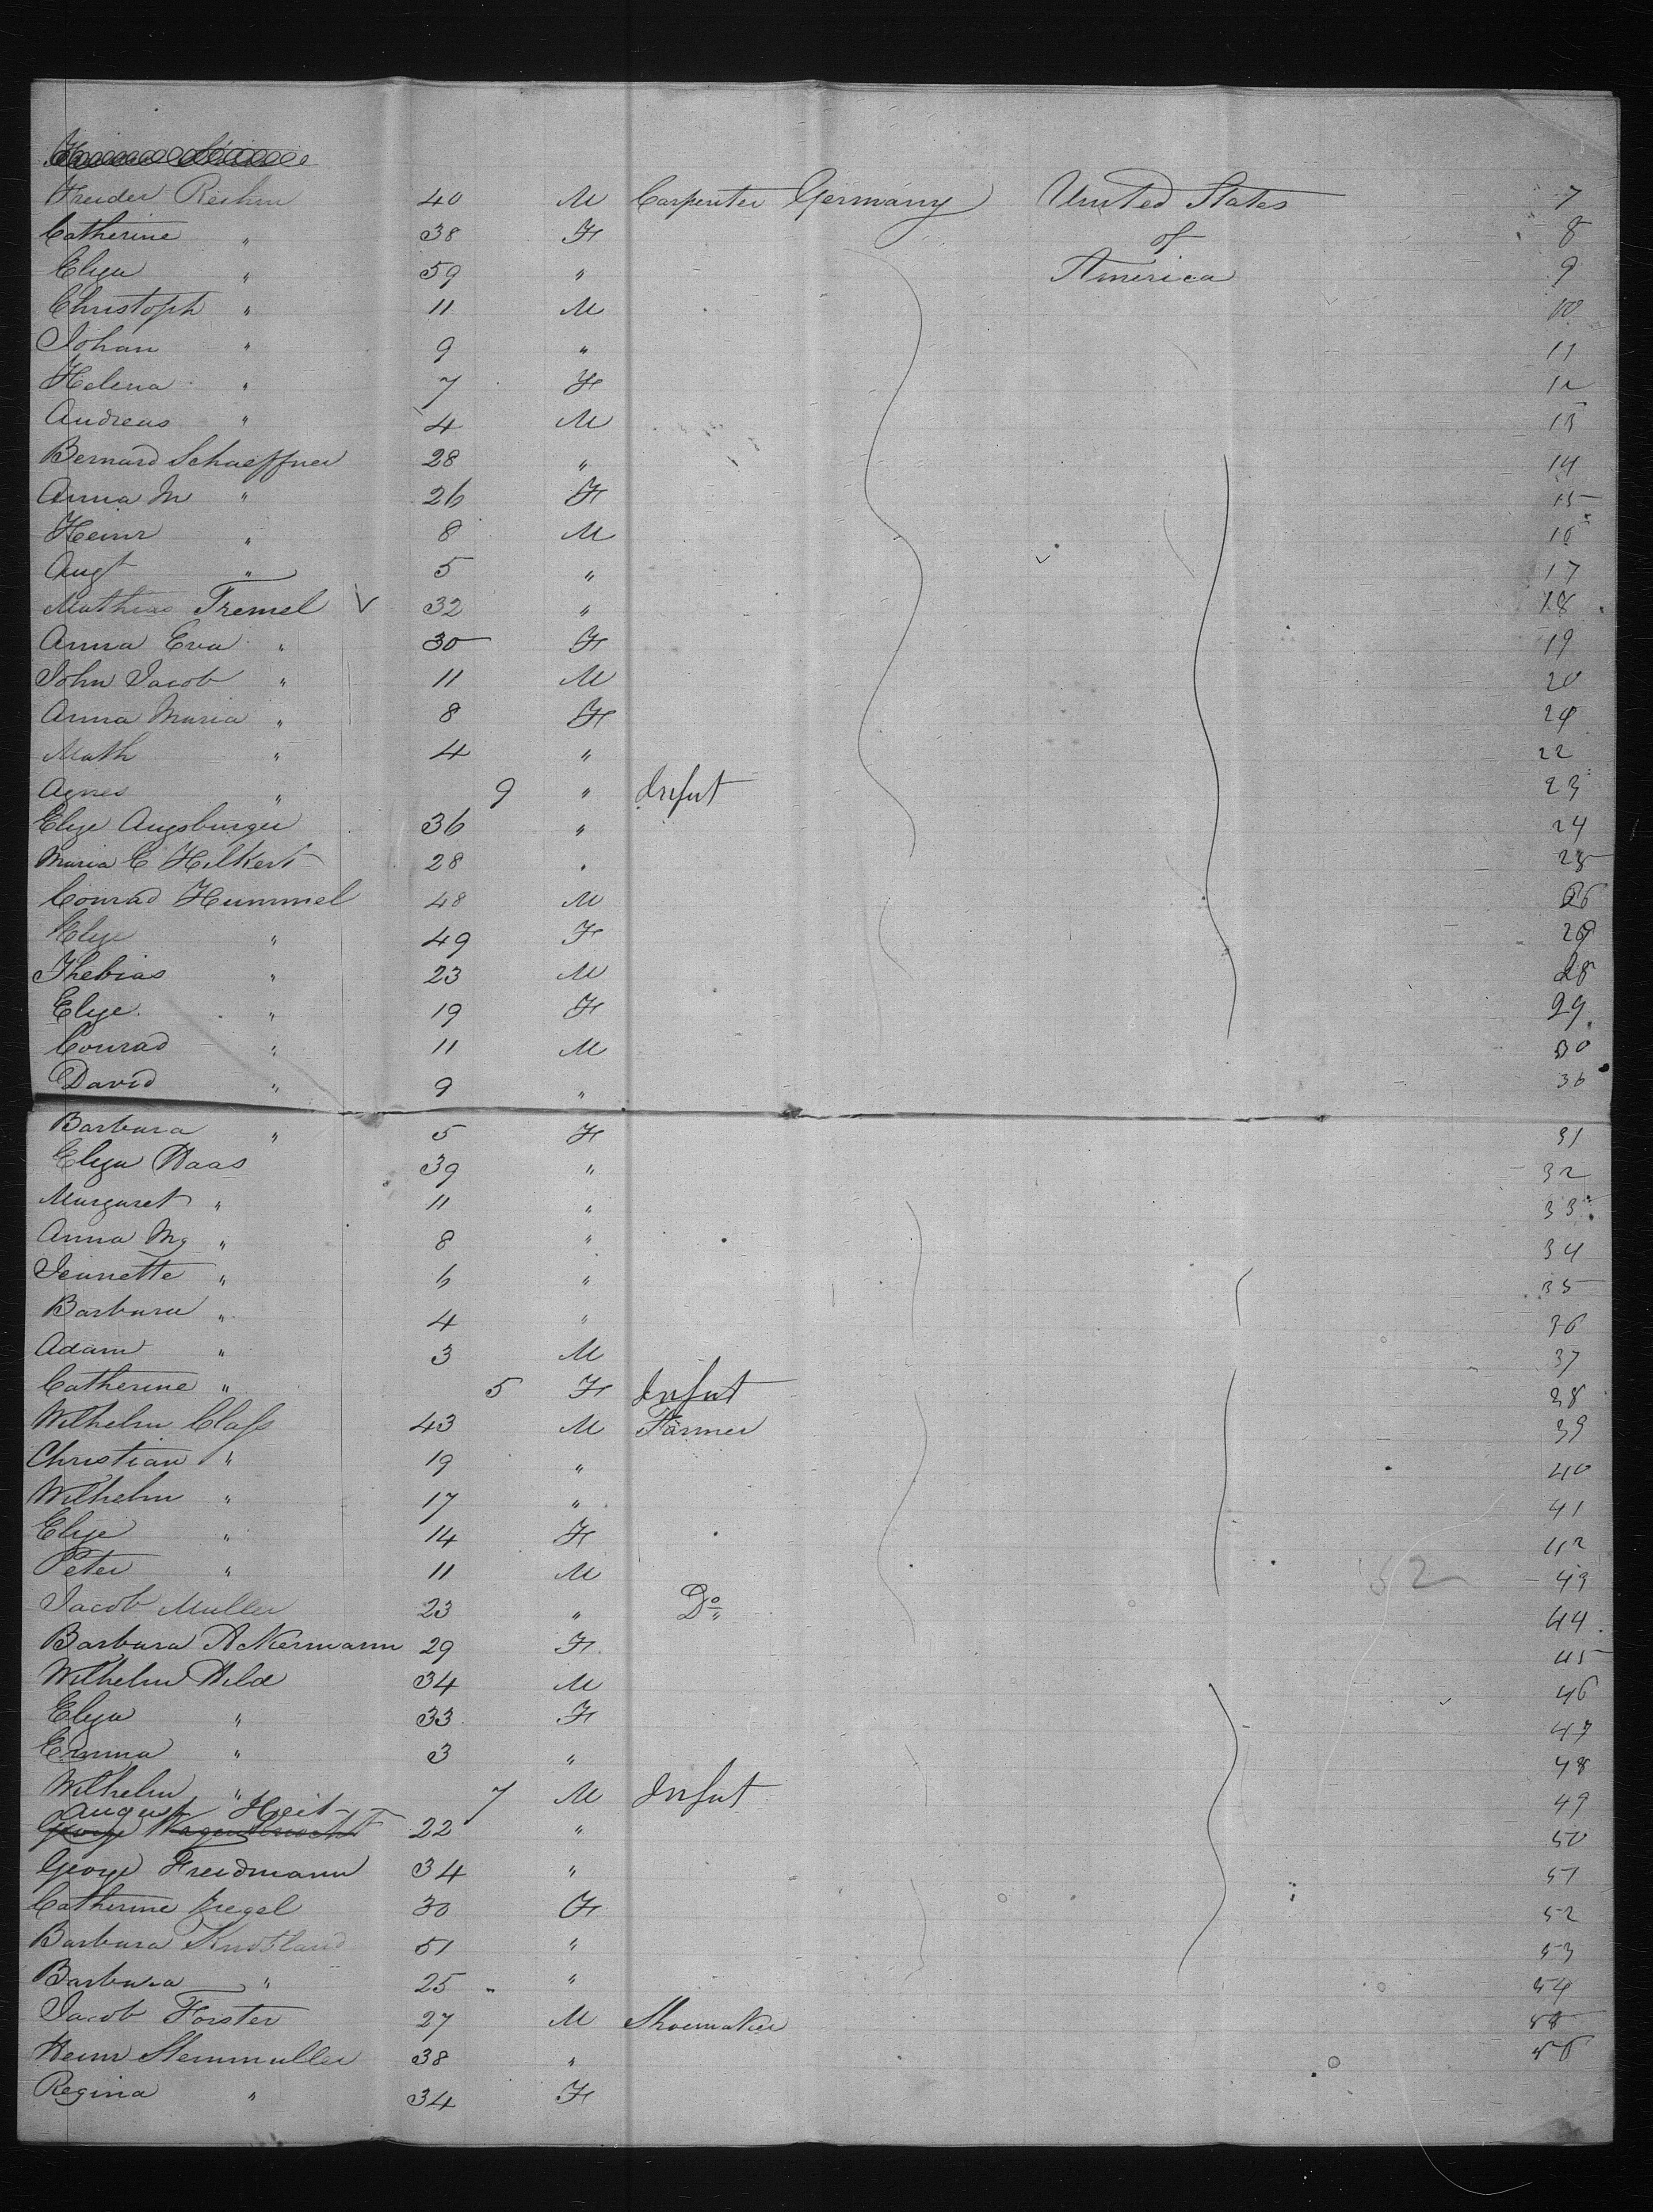 Reihm 40 M Carpenter Germany United States 7
Catherine " 38 F of 8
Eliza " 59 " America 9
Christoph " 11 M 10
Johan " 9 " 11
Helena " 7 F 12
Andreas " 4 M 13
Bernard Schaeffner 28 " 14
Anna M " 26 F 15
Heinr " 8 M 16
Augt " 5 " 17
Mathias Tremel V 32 " 18
Anna Eva " 30 F 19
John Jacob " 11 M 20
Anna Maria " 8 F 21
Math " 4 " 22
Agnes " 9 " Infnt 23
Elize Augsburger 36 " 24
Maria C Hilkert 28 " 25
Conrad Hummel 48 M 26
Elize " 49 F
Thebias " 23 M 28
Elize " 19 F 29
Conrad " 11 M 30
David " 9 " 36
Barbara " 5 F 31
Eliza Haas 39 " 32
Margaret " 11 " 33
Anna Mg " 8 " 34
Jeanette " 6 " 35
Barbara " 4 " 36
Adam " 3 M 37
Catherine " 5 F Infnt 38
Wilhelm Class 43 M Farmer 39
Christian " 19 " 40
Wilhelm " 17 " 41
Elize " 14 F 42
Peter " 11 M 52 43
Jacob Muller 23 " Do 44
Barbara Ackermann 29 F 45
Wilhelm Hild 34 M 46
Eliza " 33 F 47
Emma " 3 " 48
Wilhelm " 7 M Infnt 49
August Heit
George 22 " 50
George Freidmann 34 " 51
Catherine Ziegel 30 F 52
Barbara 51 " 53
Barbara " 25 " 54
Jacob Forster 27 M Shoemaker 55
Heinr Stemmuller 38 " 56
Regina " 34 F